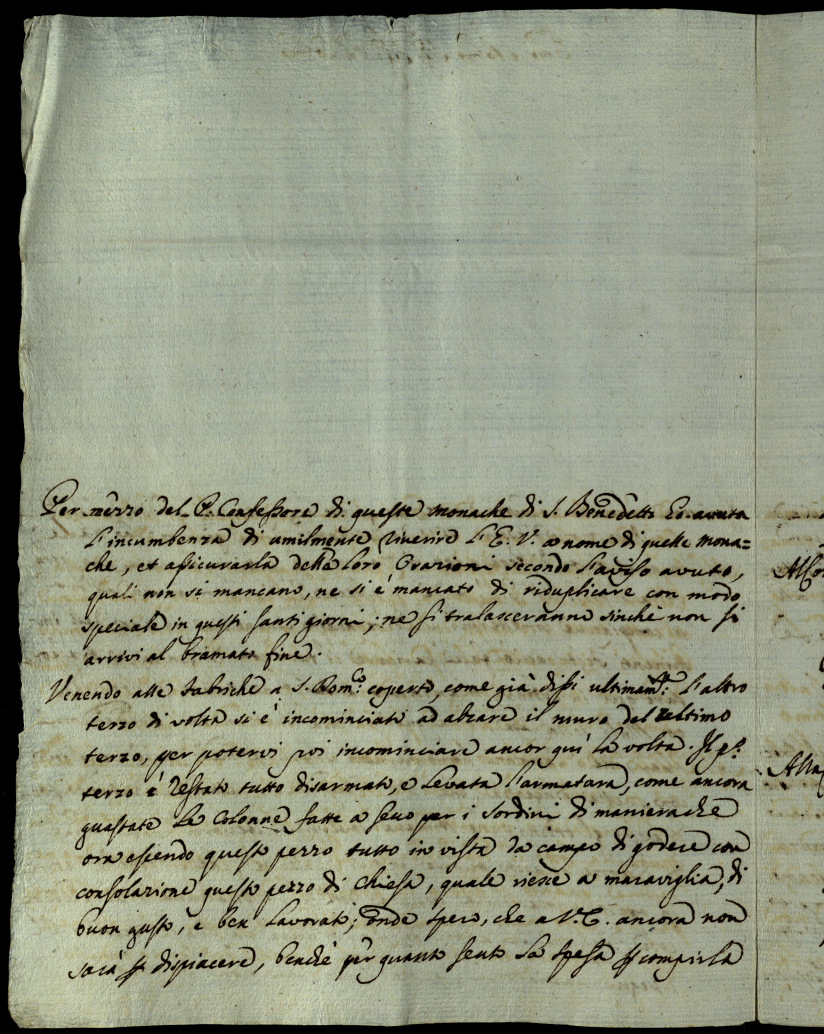 Per mezzo del P. Confessore di queste monache di S. Benedetto ho avuta
l'incumbenza di umilmente riverire l'E. V. a nome di quelle mona=
che, et assicurarla delle loro Orazioni secondo l'aviso avuto,
quali non si mancano, ne si è mancato di riduplicare con modo
speciale in questi santi giorni; ne si tralasceranno sinchè non si
arrivi al bramato fine.
Venendo alle fabriche a S. Rom.o coperto, come già dissi ultimam.te l'altro
terzo di volta si è incominciato ad alzare il muro del ultimo
terzo, per potervi poi incominciare ancor qui la volta. Il p.o
terzo è restato tutto disarmato, e levata l'armatura, come ancora
guastate le colonne fatte a
per i sordini di manierache
ora essendo questo pezzo tutto in vista da campo di godere con
consolazione questo pezzo di Chiesa, quale riesce a maraviglia, di
buon gusto, e ben lavorato; onde spero, che a V. E. ancora non
sarà p dispiacere, benchè per quanto sento la spesa p compirla